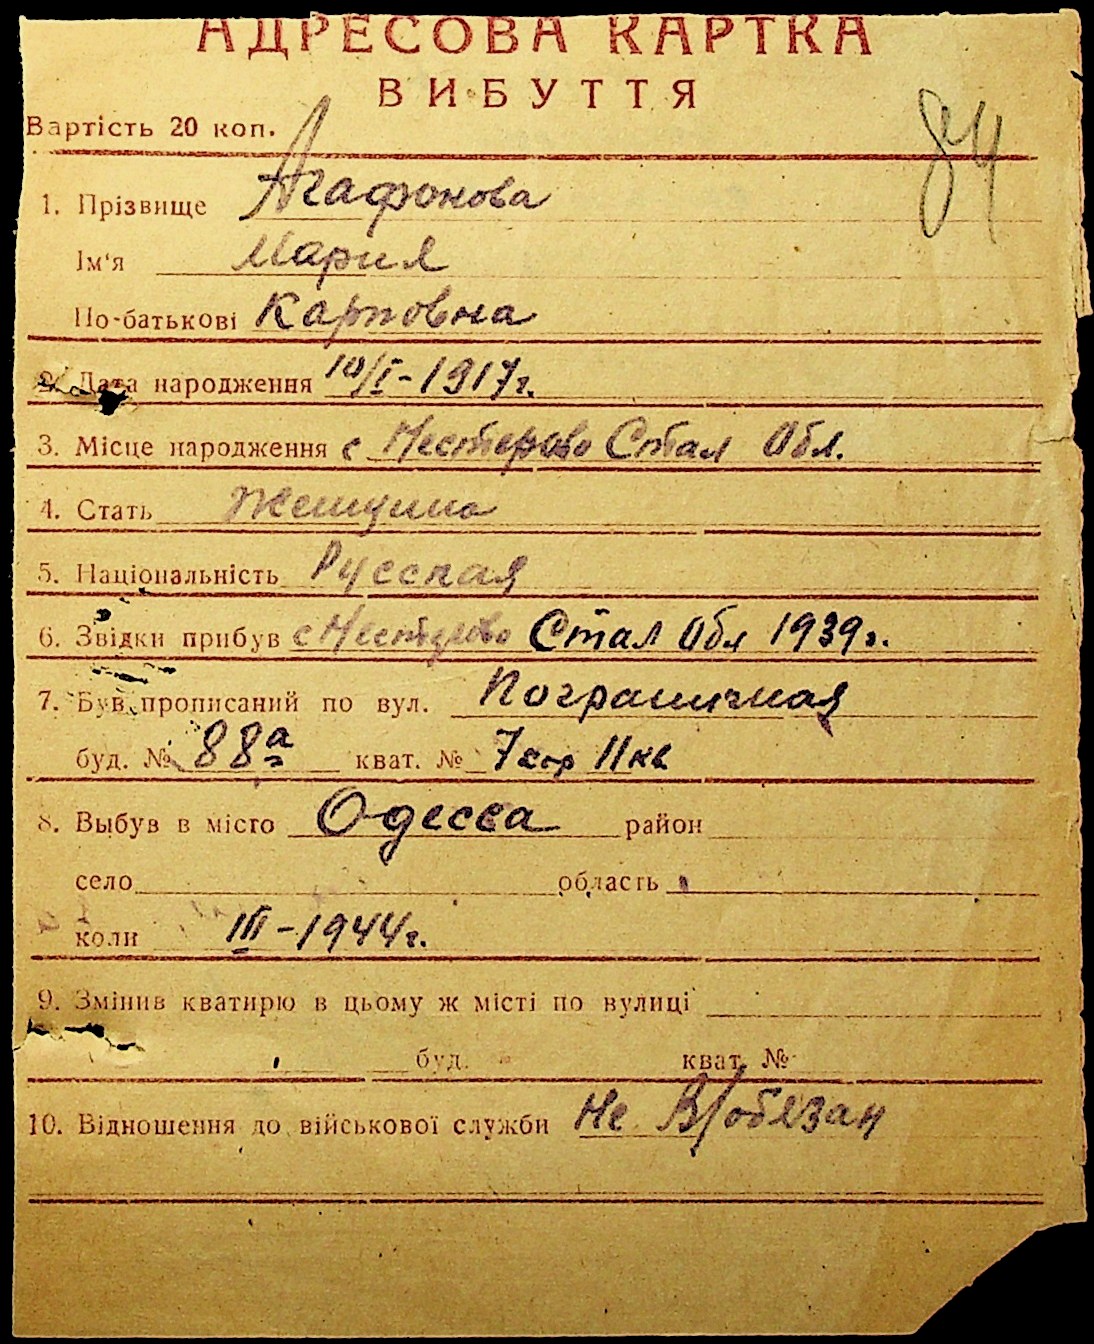 АДРЕСОВА КАРТКА
ВИБУТТЯ
Вартість 20 коп.
84
1. Прізвище Агафонова
Ім'я Мария
По-батькові Карповна
2. Дата народження 10/I-1917г.
3. Місце народження с Нестерово Стал Обл.
4. Стать Женщина
5. Національність Русская
6. Звідки прибув с Нестерово Стал Обл 1939г.
7. Був прописаний по вул. Пограничная
буд. № 88а кват. № 7 кор 11 кв
8. Выбув в місто Одесса район
село область
коли III-1944г.
9. Змінив кватирю в цьому ж місті по вулиці
буд. кват. №
10. Відношення до військової служби Не В/обязан